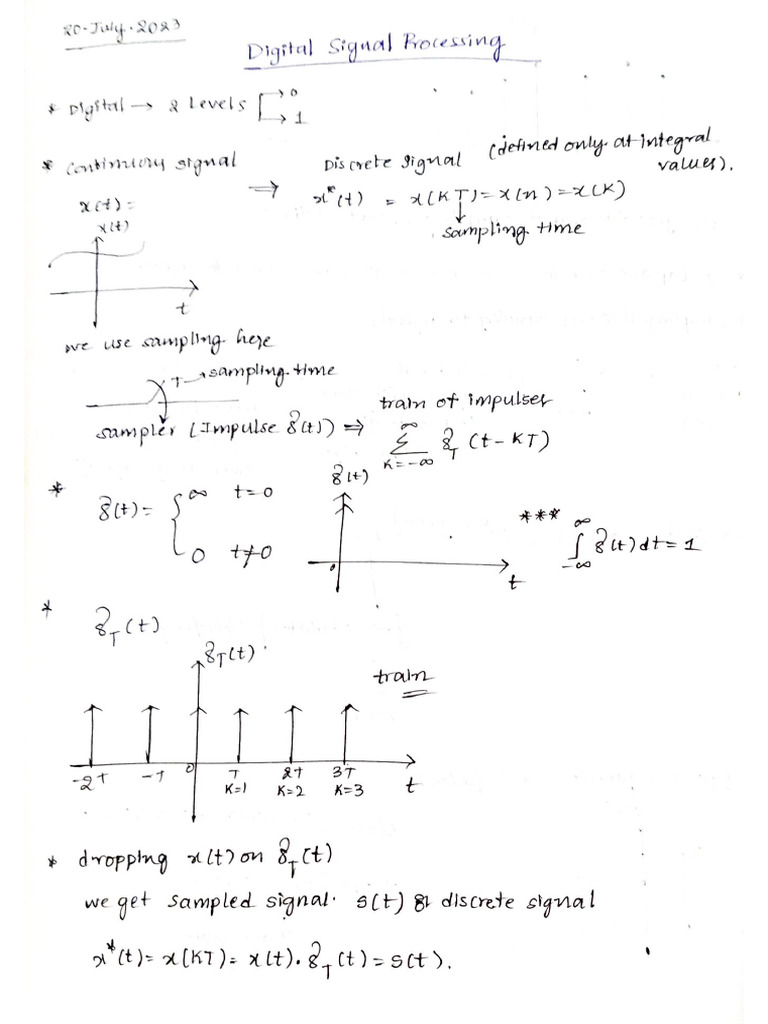 20-July-2023
Digital Signal Processing
* Digital → 2 Levels → 0
→ 1
* Continuous signal ⇒ Discrete signal (defined only at integral values).
x(t) = x*(t) = x(KT) = x(n) = x(K)
x(t) sampling time
t
we use sampling here
T → sampling time
train of impulses
sampler (Impulse δ(t)) ⇒ ∞ Σ K=-∞ δT (t-KT)
* δ(t) = { ∞ t=0
0 t≠0
δ(t)
0
t
*** ∞ ∫ -∞ δ(t) dt = 1
* δT(t)
δT(t)
train
-2T -T 0 T 2T 3T t
K=1 K=2 K=3
* dropping x(t) on δT(t)
we get sampled signal s(t) or discrete signal
x*(t) = x(KT) = x(t). δT(t) = s(t).